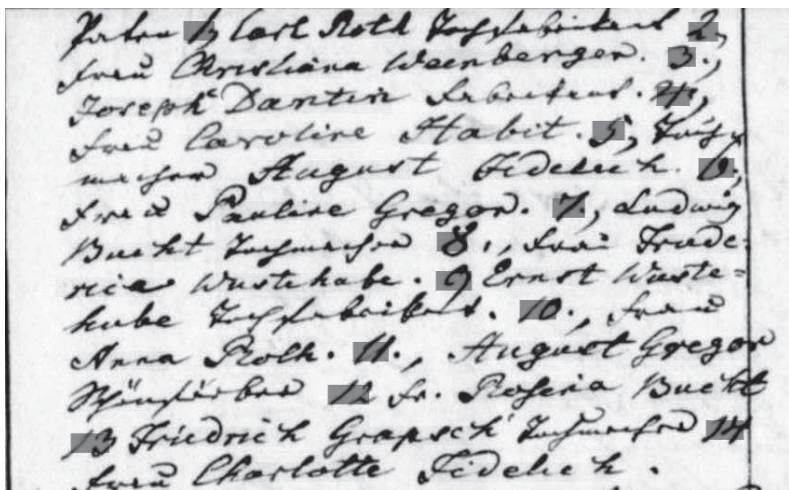 Paten 1, Carl Roth Tuchfabrikant 2,
Frau Christiana Weinberger. 3.,
Joseph Dantin Fabrikant. 4,
Frau Caroline Habit. 5, Tuch-
macher August Fidelich. 6,
Frau Pauline Gregor. 7, Ludwig
Buckt Tuchmacher 8., Frau Friede-
rica Wustehabe. 9 Ernst Wuste=
habe Tuchfabrikant. 10., Frau
Anna Roth. 11., August Gregor
Schönfärber 12 Fr. Rosina Buckt
13 Friedrich Grapsch Tuchmacher 14
Frau Charlotte Fidelich.